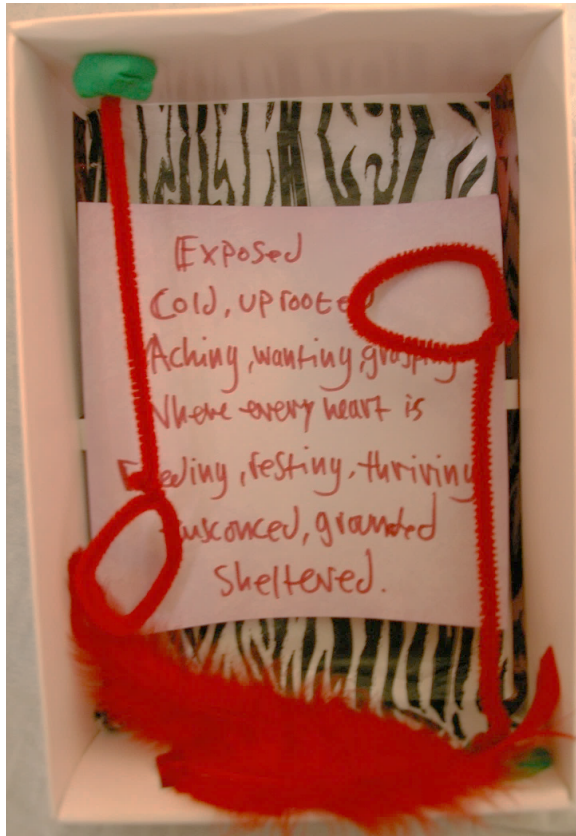 Exposed
Cold, uprooted
Aching, wanting, grasping
Where every heart is
Feeding, resting, thriving
Ensconced, grounded
Sheltered.